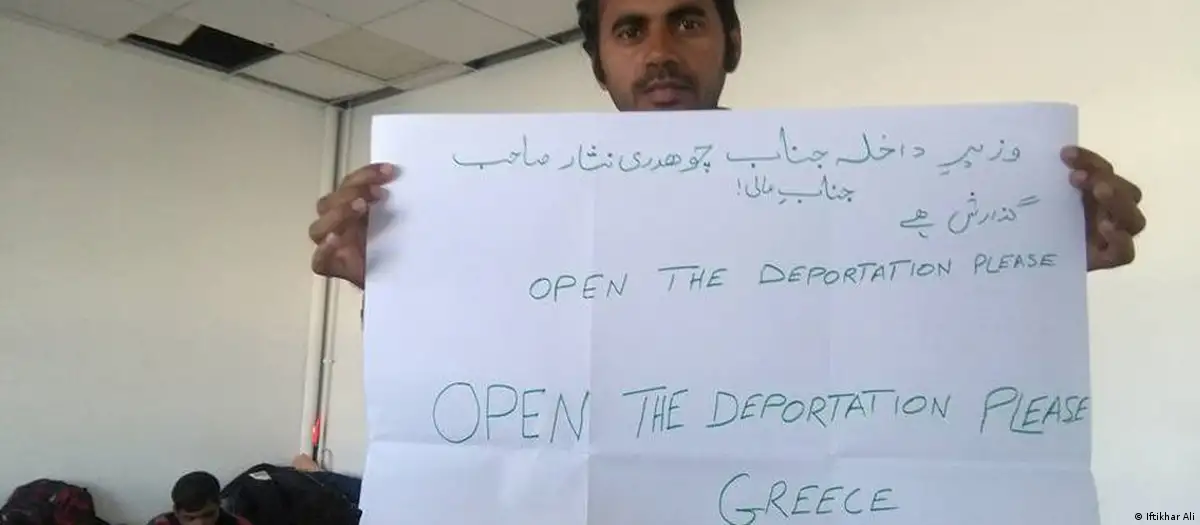 وزیرِ داخلہ جناب چوھدری نثار صاحب
جنابِ عالی!
گذارش ہے
OPEN THE DEPORTATION PLEASE
OPEN THE DEPORTATION PLEASE
GREECE
© Iftikhar Ali